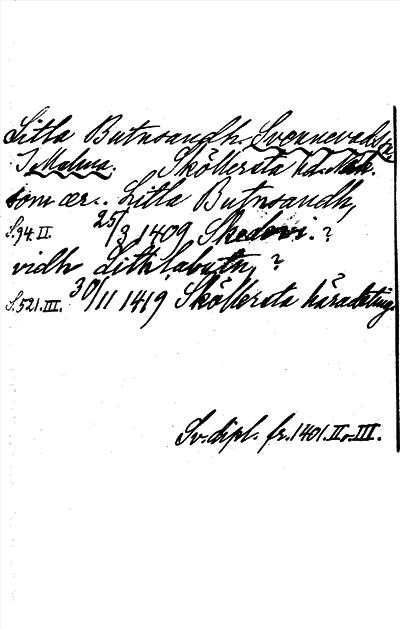 Litla Butnsandh Svennevads?
I Malma. Sköllersta hd. Närk.
som ær.. Litla Butnsandh,
S.94.II. 25/3 1409 Skedevi.?
vidh Lithlabutn, ?
S.521.III. 30/11 1419 Sköllersta häradsting.
Sv. dipl. fr. 1401. II o. III.